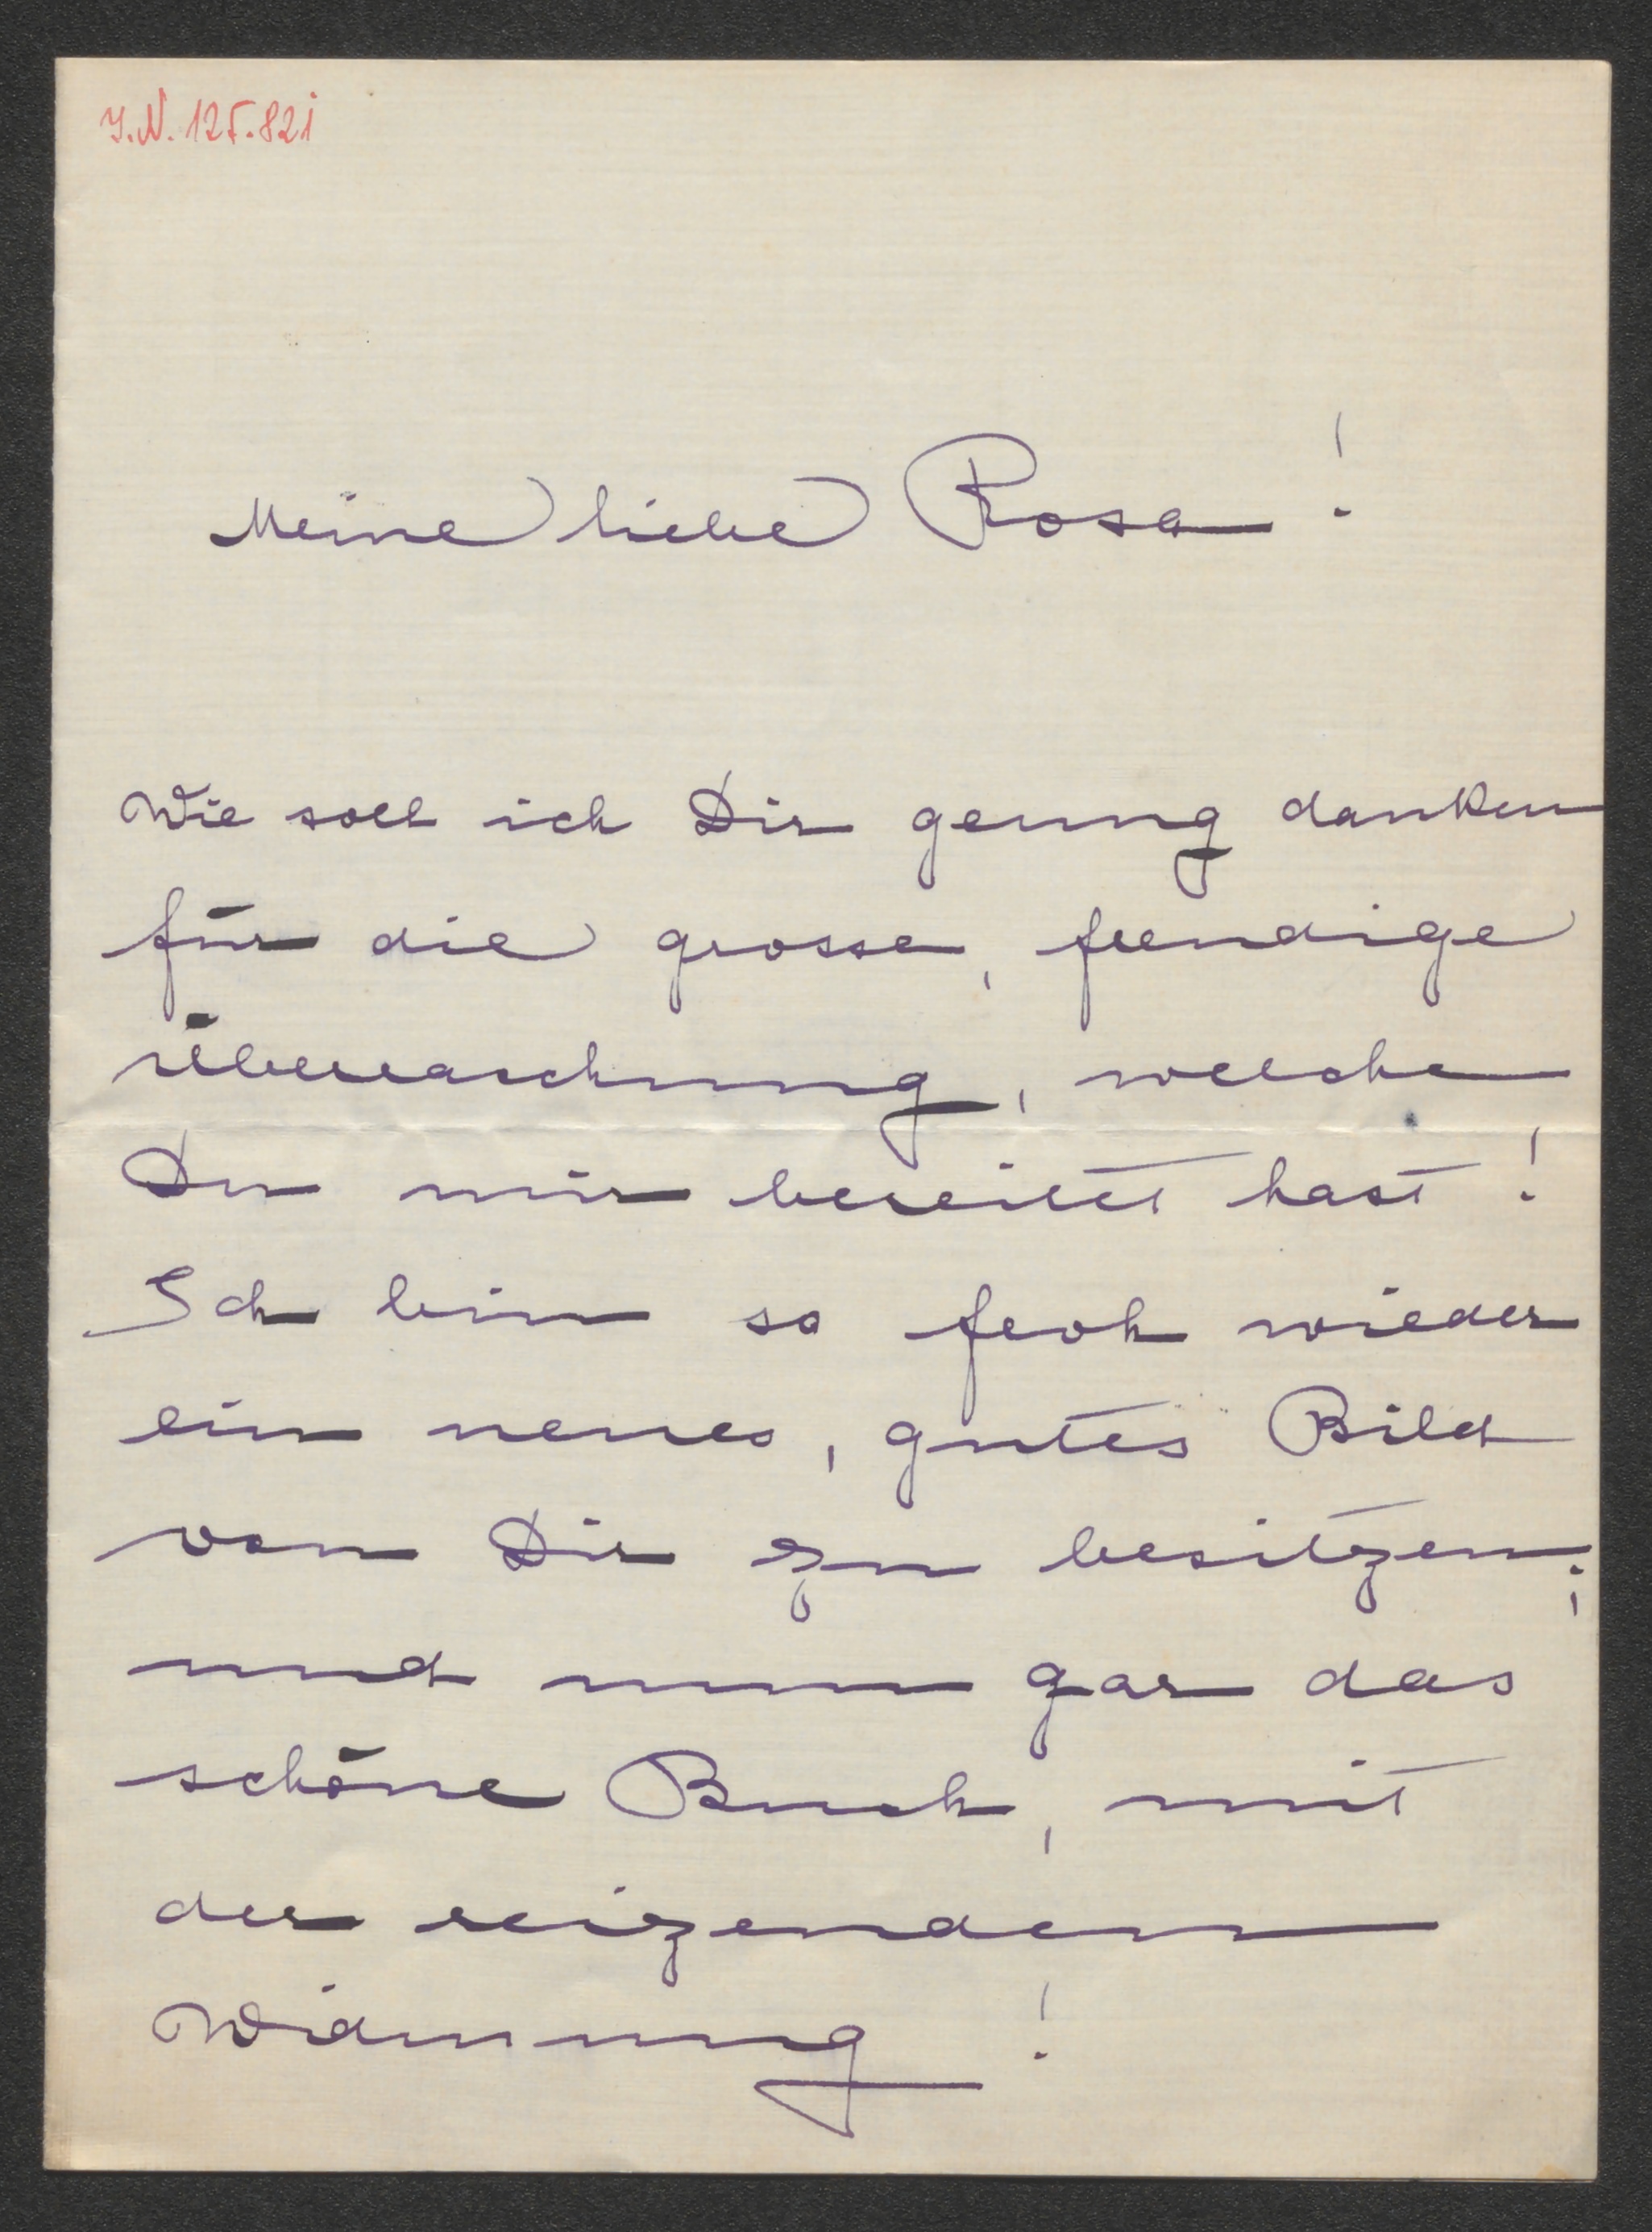 I.N. 125.821
Meine liebe Rosa!
Wie soll ich Dir genug danken
für die grosse, freudige
Überraschung, welche
Du mir bereitet hast!
Ich bin so froh wieder
ein neues, gutes Bild
von Dir zu besitzen;
und nun gar das
schöne Buch, mit
der reizenden
Widmung!